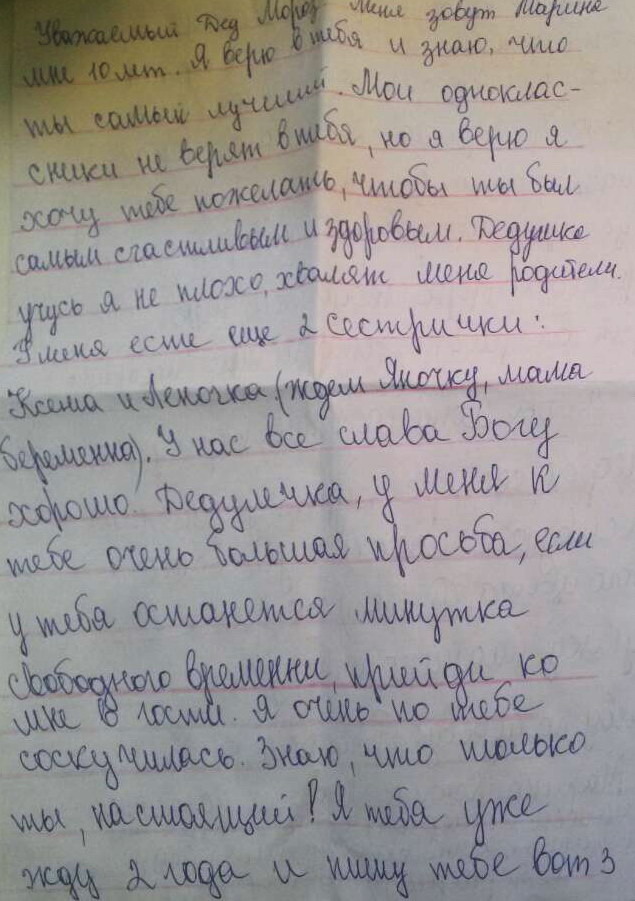 Уважаемый Дед Мороз меня зовут Марина
мне 10 лет. Я верю в тебя и знаю, что
ты самый лучший. Мои одноклас-
сники не верят в тебя, но я верю я
хочу тебе пожелать, чтобы ты был
самым счастливым и здоровым. Дедушка
учусь я не плохо, хвалят меня родители.
У меня есть еще 2 сестрички:
Ксюша и Леночка (ждем Яночку, мама
беременна). У нас все слава Богу
хорошо. Дедулечка, у меня к
тебе очень большая просьба, если
у тебя останется минутка
свободного временни, прийди ко
мне в гости. Я очень по тебе
соскучилась. Знаю, что только
ты, настоящий! Я тебя уже
жду 2 года и пишу тебе вот 3